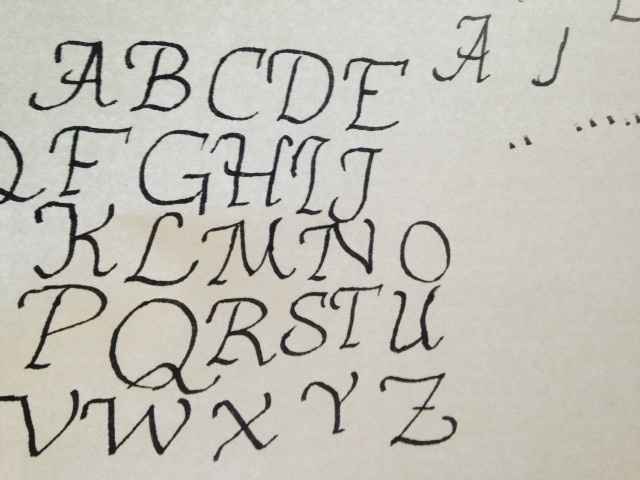 A B C D E
F G H I J
K L M N O
P Q R S T U
V W X Y Z
A J